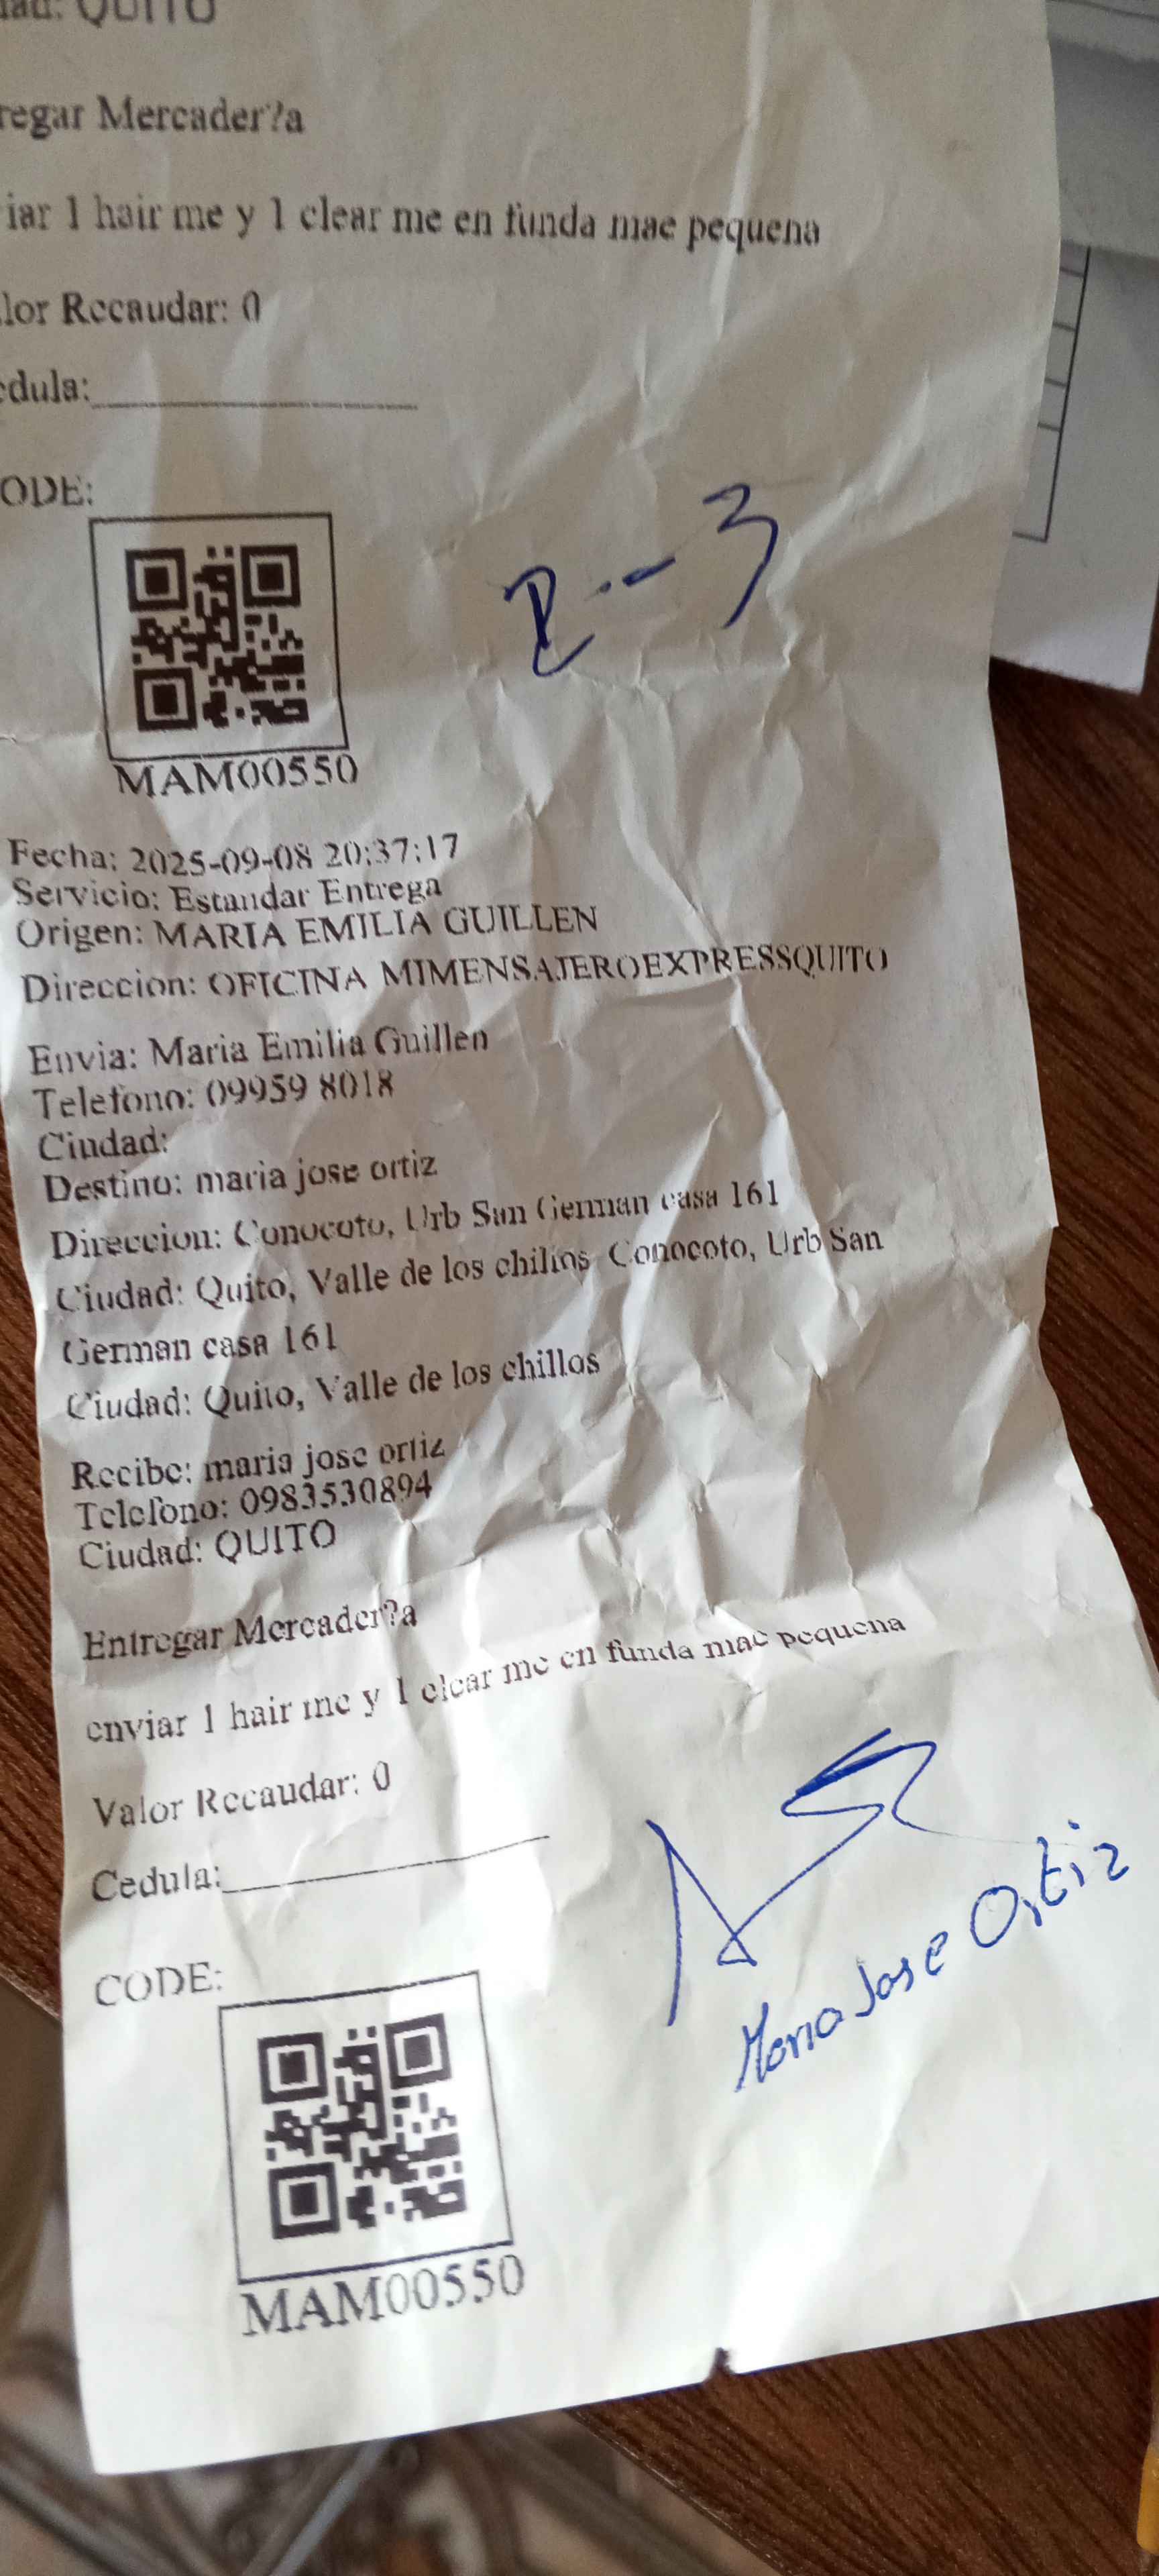 dad: QUITO
regar Mercader?a
iar 1 hair me y 1 clear me en funda mae pequena
lor Recaudar: 0
edula:
ODE:
MAM00550
Fecha: 2025-09-08 20:37:17
Servicio: Estandar Entrega
Origen: MARIA EMILIA GUILLEN
Direccion: OFICINA MIMENSAJEROEXPRESSQUITO
Envia: Maria Emilia Guillen
Telefono: 09959 8018
Ciudad:
Destino: maria jose ortiz
Direccion: Conocoto, Urb San German casa 161
Ciudad: Quito, Valle de los chillos Conocoto, Urb San
German casa 161
Ciudad: Quito, Valle de los chillos
Recibe: maria jose ortiz
Telefono: 0983530894
Ciudad: QUITO
Entregar Mercader?a
enviar 1 hair me y 1 clear me en funda mae pequena
Valor Recaudar: 0
Cedula:
Maria Jose Ortiz
CODE:
MAM00550